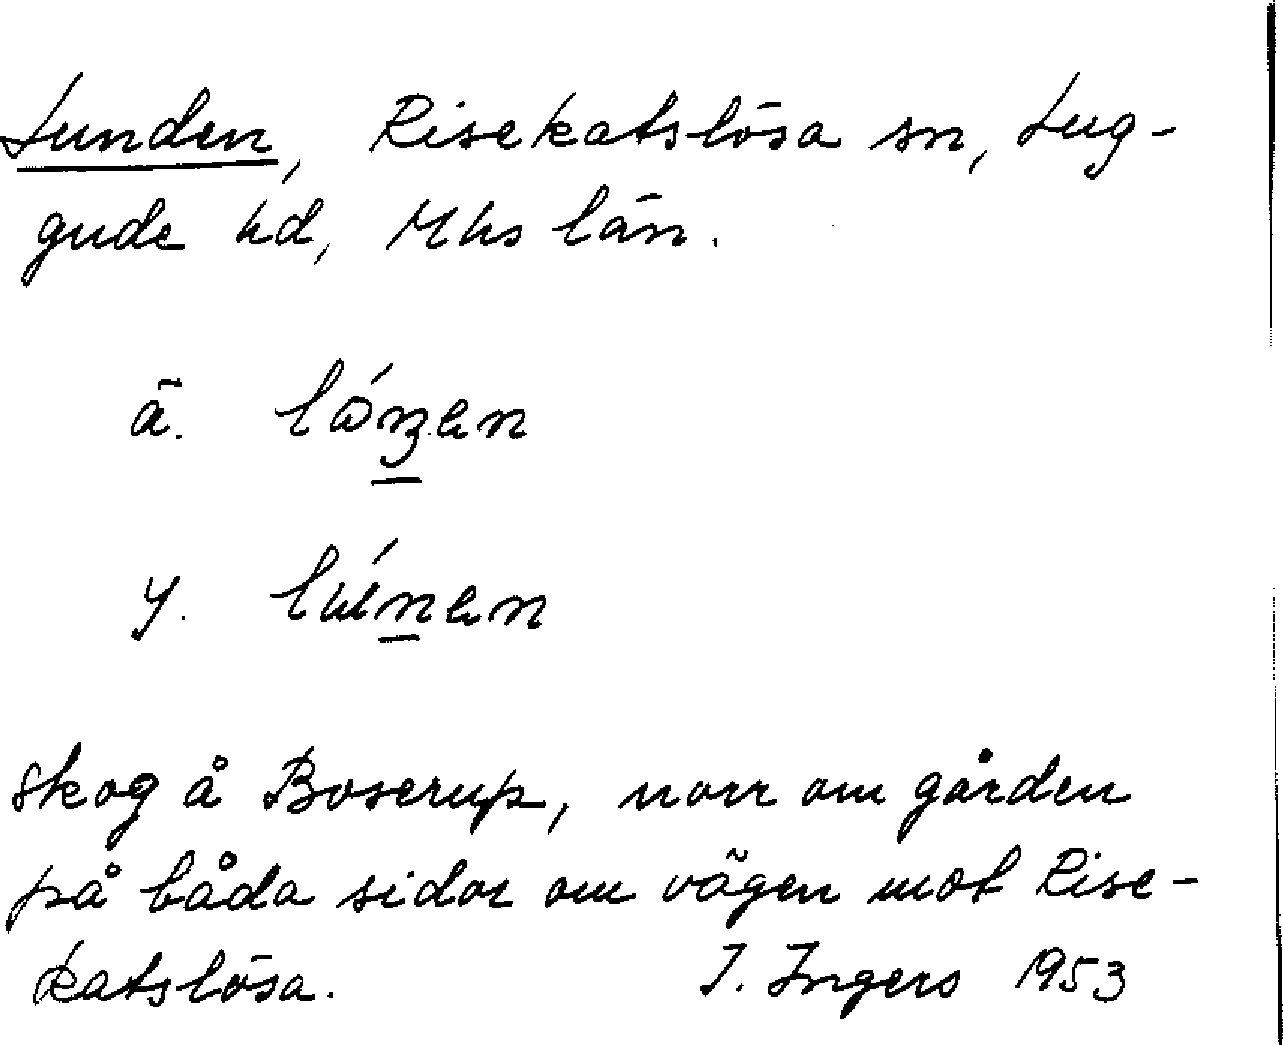 Lunden, Risekatslösa sn, Lug-
gude hd, Mhs län.
ä. lónen
y. lúnen
Skog å Boserup, norr om gården
på båda sidor om vägen mot Rise-
katslösa. I. Ingers 1953